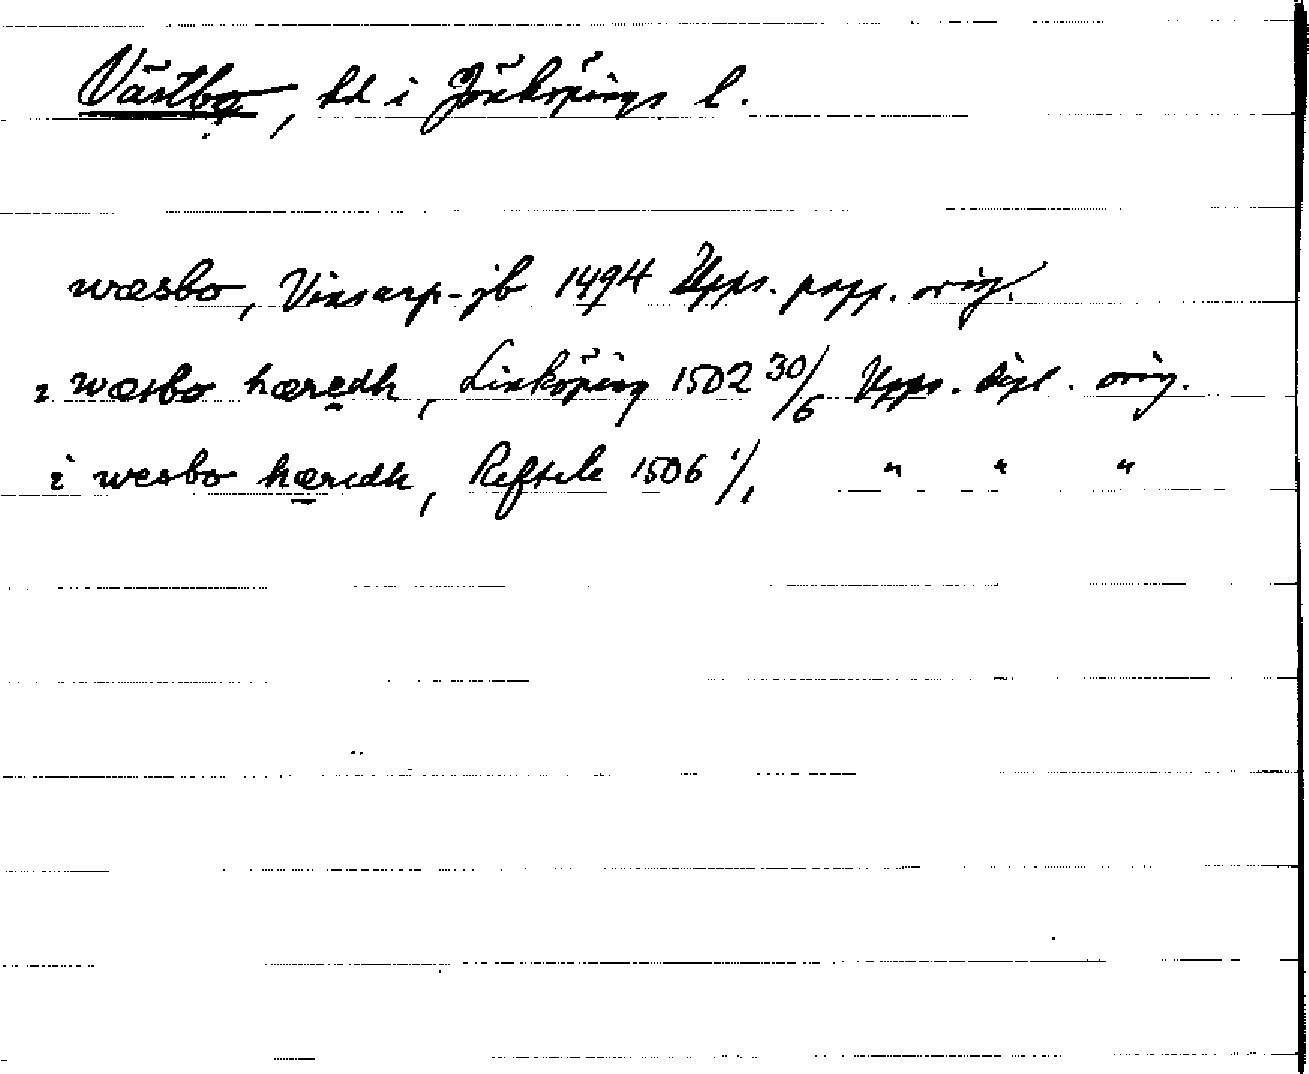 Västbo, hd i Jönköpings l.
wæsbo, Vinsarp-jb 1494 Upps. papp. orig.
i wæsbo hæredh, Linköping 1502 30/6 Upps. dipl. orig.
i wesbo hæredh, Reftele 1506 1/1 " " "